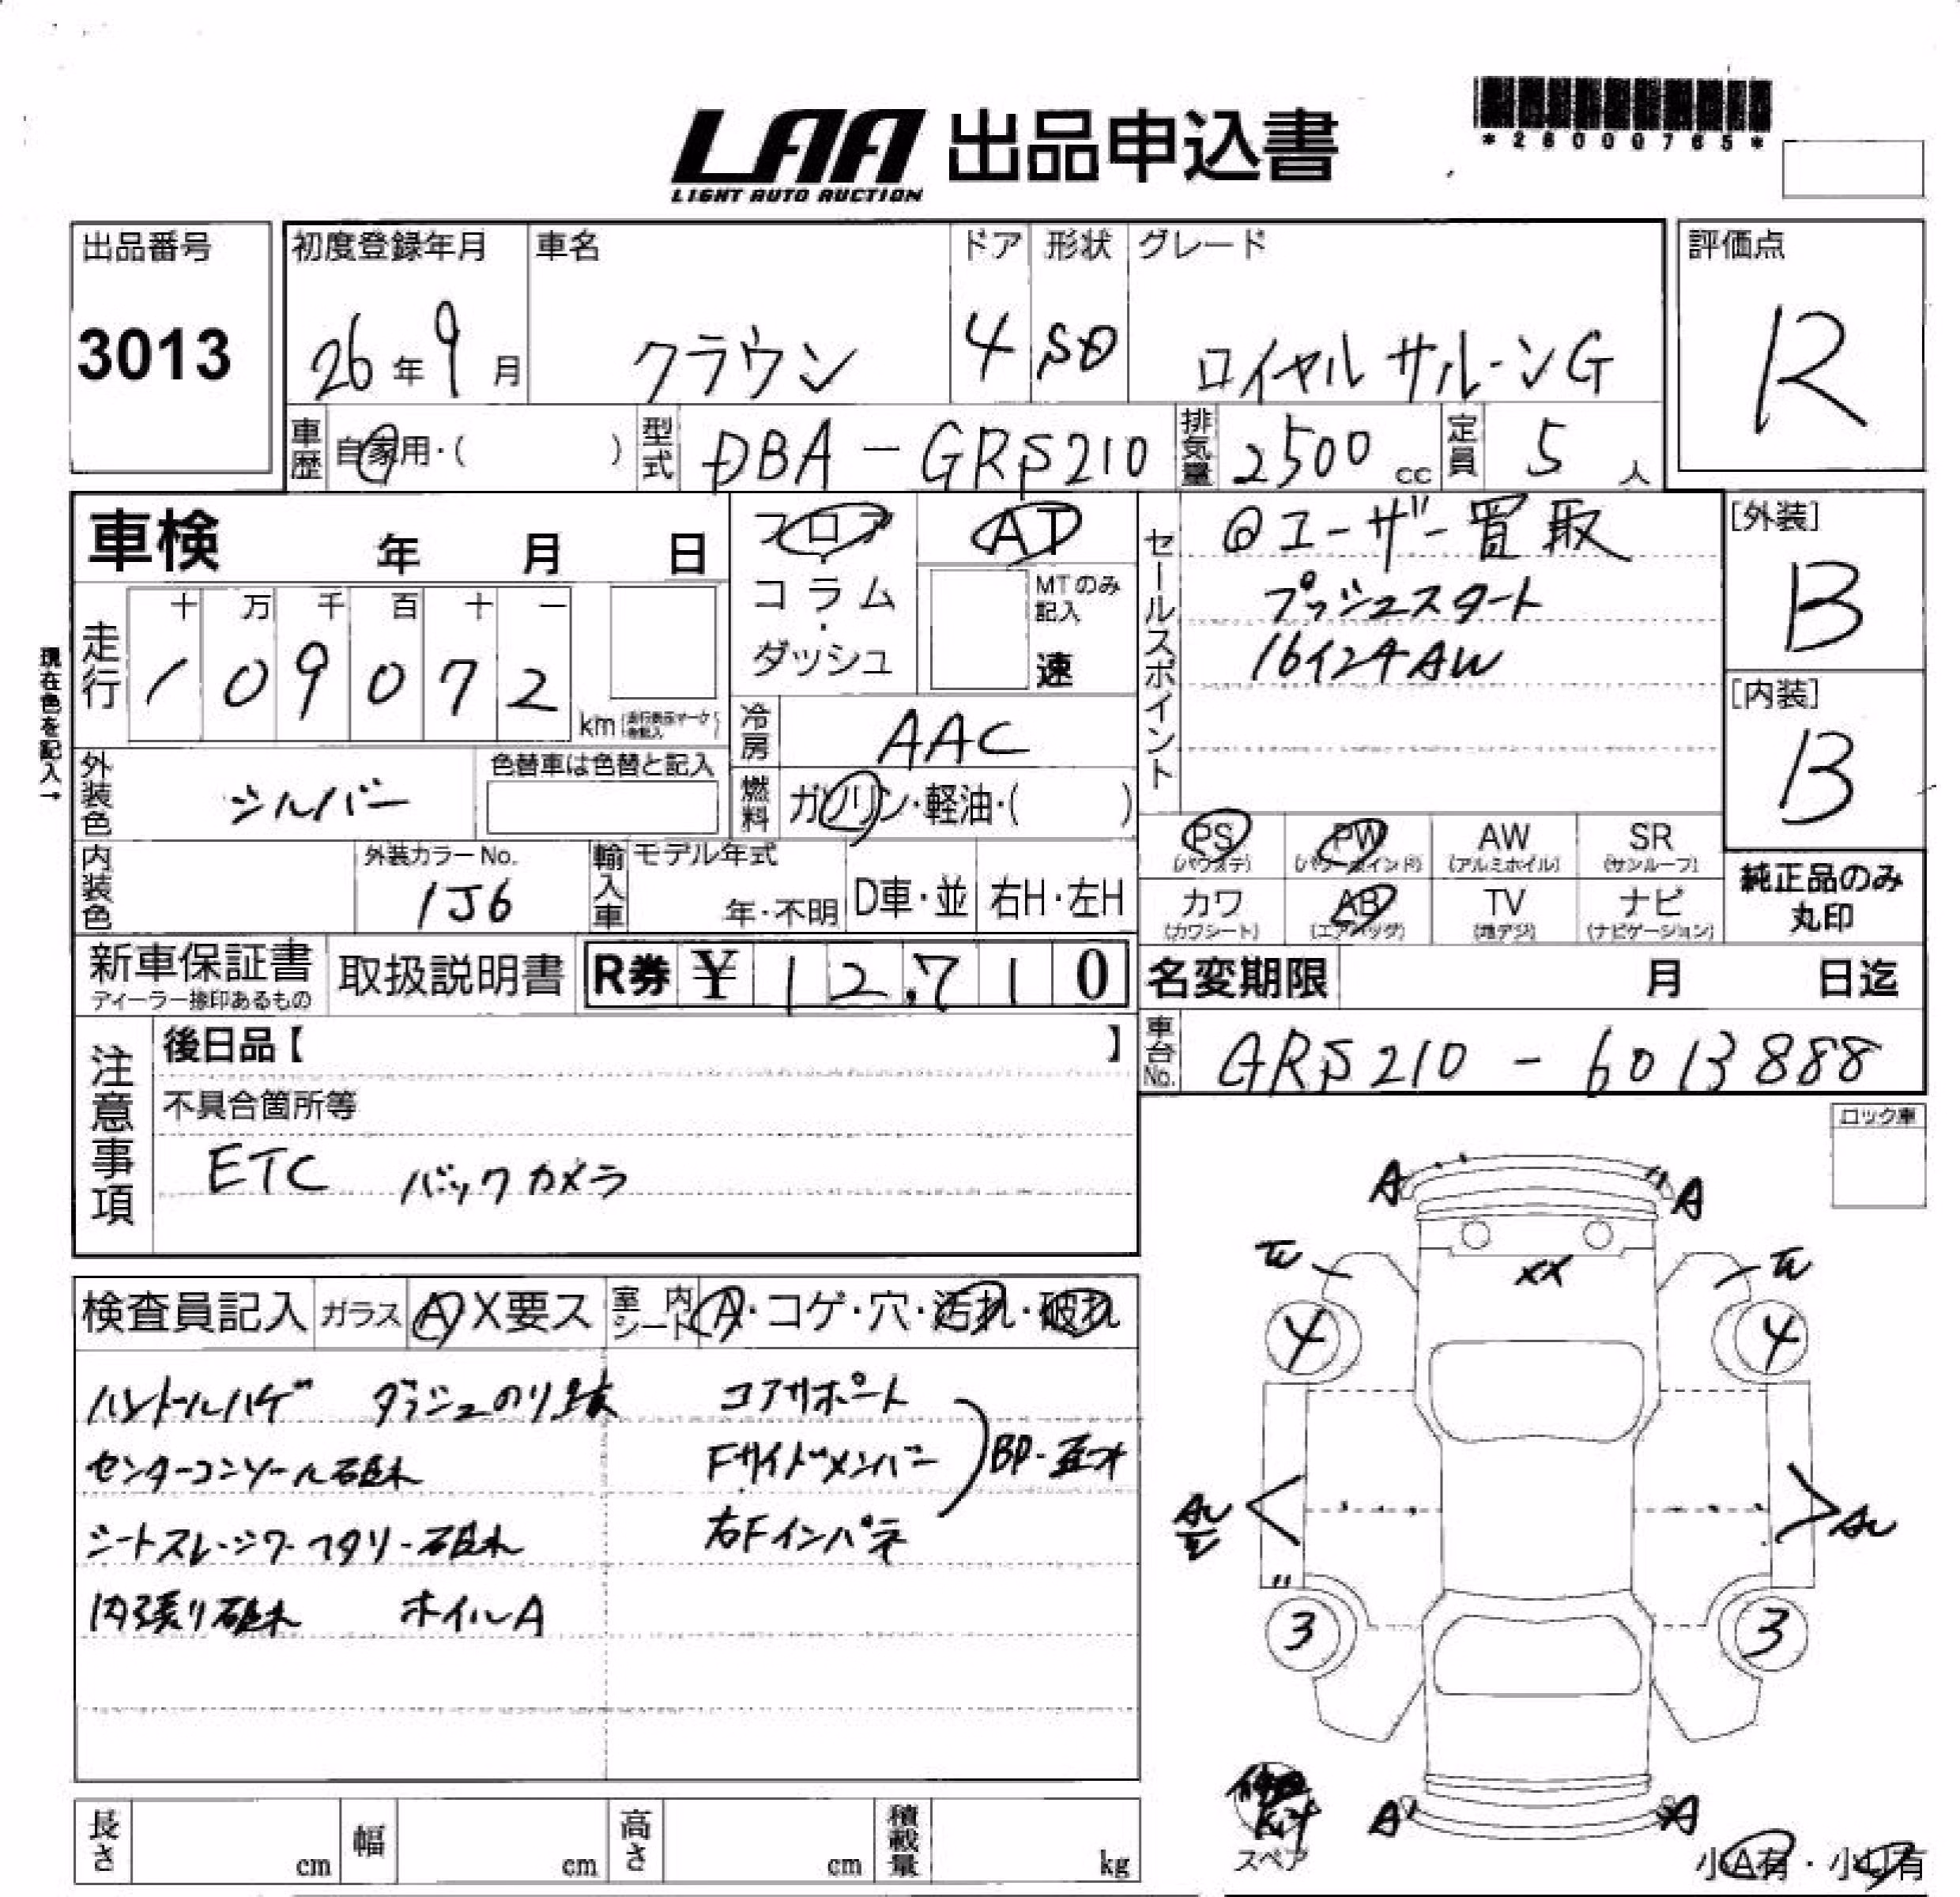 *26000765*
LAA 出品申込書
LIGHT AUTO AUCTION
出品番号
3013
初度登録年月
26年9月
車名
クラウン
ドア
4
形状
SD
グレード
ロイヤルサルーンG
評価点
R
車歴 自家用・( )
型式 DBA-GRS210
排気量 2500cc
定員 5人
車検 年 月 日
フロア・コラム・ダッシュ
AT
MTのみ記入
速
セールスポイント
@ユーザー買取
プッシュスタート
16インチAW
[外装]
B
[内装]
B
現在色を記入→
走行
十 万 千 百 十 一
109072 km
冷房 AAC
外装色 シルバー
色替車は色替と記入
燃料 ガソリン・軽油・( )
内装色
外装カラーNo.
1J6
輸入車
モデル年式
年・不明
D車・並
右H・左H
PS (パワステ)
PW (パワーウインド)
AW (アルミホイル)
SR (サンルーフ)
カワ (カワシート)
AB (エアバッグ)
TV (地デジ)
ナビ (ナビゲーション)
純正品のみ
丸印
新車保証書
ディーラー捺印あるもの
取扱説明書
R券 ¥12,710
名変期限 月 日迄
車台No. GRS210-6013888
注意事項
後日品【 】
不具合箇所等
ETC バックカメラ
ロック車
検査員記入
ガラス A X要ス
室内シート A・コゲ・穴・汚れ・破れ
ハンドルハゲ ダッシュのり跡
センターコンソール破れ
シートスレ・シワ・ヘタリ・破れ
内張り破れ ホイルA
コアサポート
Fサイドメンバー
右Fインパネ
BP・歪み
A
A
XX
4
4
3
3
A
A
スペア
小A有・小U有
長さ cm
幅 cm
高さ cm
積載量 kg